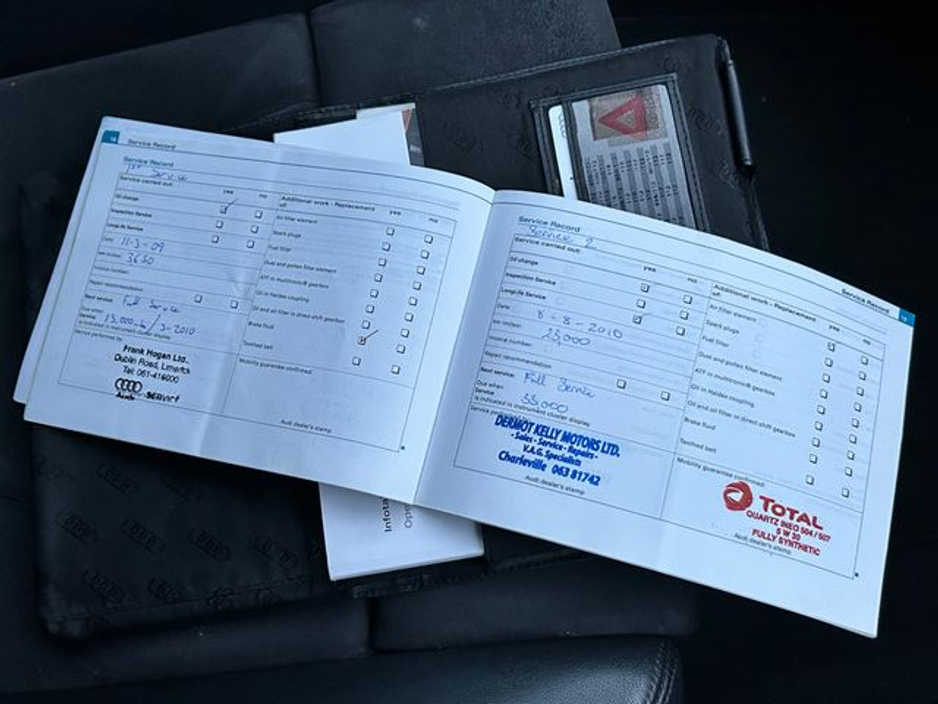 Service Record
Service Record
1st Service
Service carried out:
yes
no
Oil change
Inspection Service
LongLife Service
Date: 11-3-09
3650
Invoice number:
Repair recommendation
Next service: Full Service
Due when
Service 3-2010
is indicated in instrument cluster display
Service performed by
Frank Hogan Ltd.
Dublin Road, Limerick
Tel: 061-416000
Audi
Additional work - Replacement
of:
yes
no
Air filter element
Spark plugs
Fuel filter
Dust and pollen filter element
ATF in multitronic® gearbox
Oil in Haldex coupling
Oil and oil filter in direct shift gearbox
Brake fluid
Toothed belt
Mobility guarantee confirmed:
Audi dealer's stamp
Service Record
Service 2
Service carried out:
yes
no
Oil change
Inspection Service
LongLife Service
Date: 8-8-2010
km/miles: 23,000
Invoice number:
Repair recommendation
Next service: Full Service
Due when
Service 33,000
is indicated in instrument cluster display
Service performed
DERMOT KELLY MOTORS LTD.
- Sales - Service - Repairs -
V.A.G. Specialists
Charleville 063 81742
Audi dealer's stamp
Service Record
Additional work - Replacement
of:
yes
no
Air filter element
Spark plugs
Fuel filter
Dust and pollen filter element
ATF in multitronic® gearbox
Oil in Haldex coupling
Oil and oil filter in direct shift gearbox
Brake fluid
Toothed belt
Mobility guarantee confirmed:
TOTAL
QUARTZ INEO 504 / 507
5 W 30
FULLY SYNTHETIC
Audi dealer's stamp